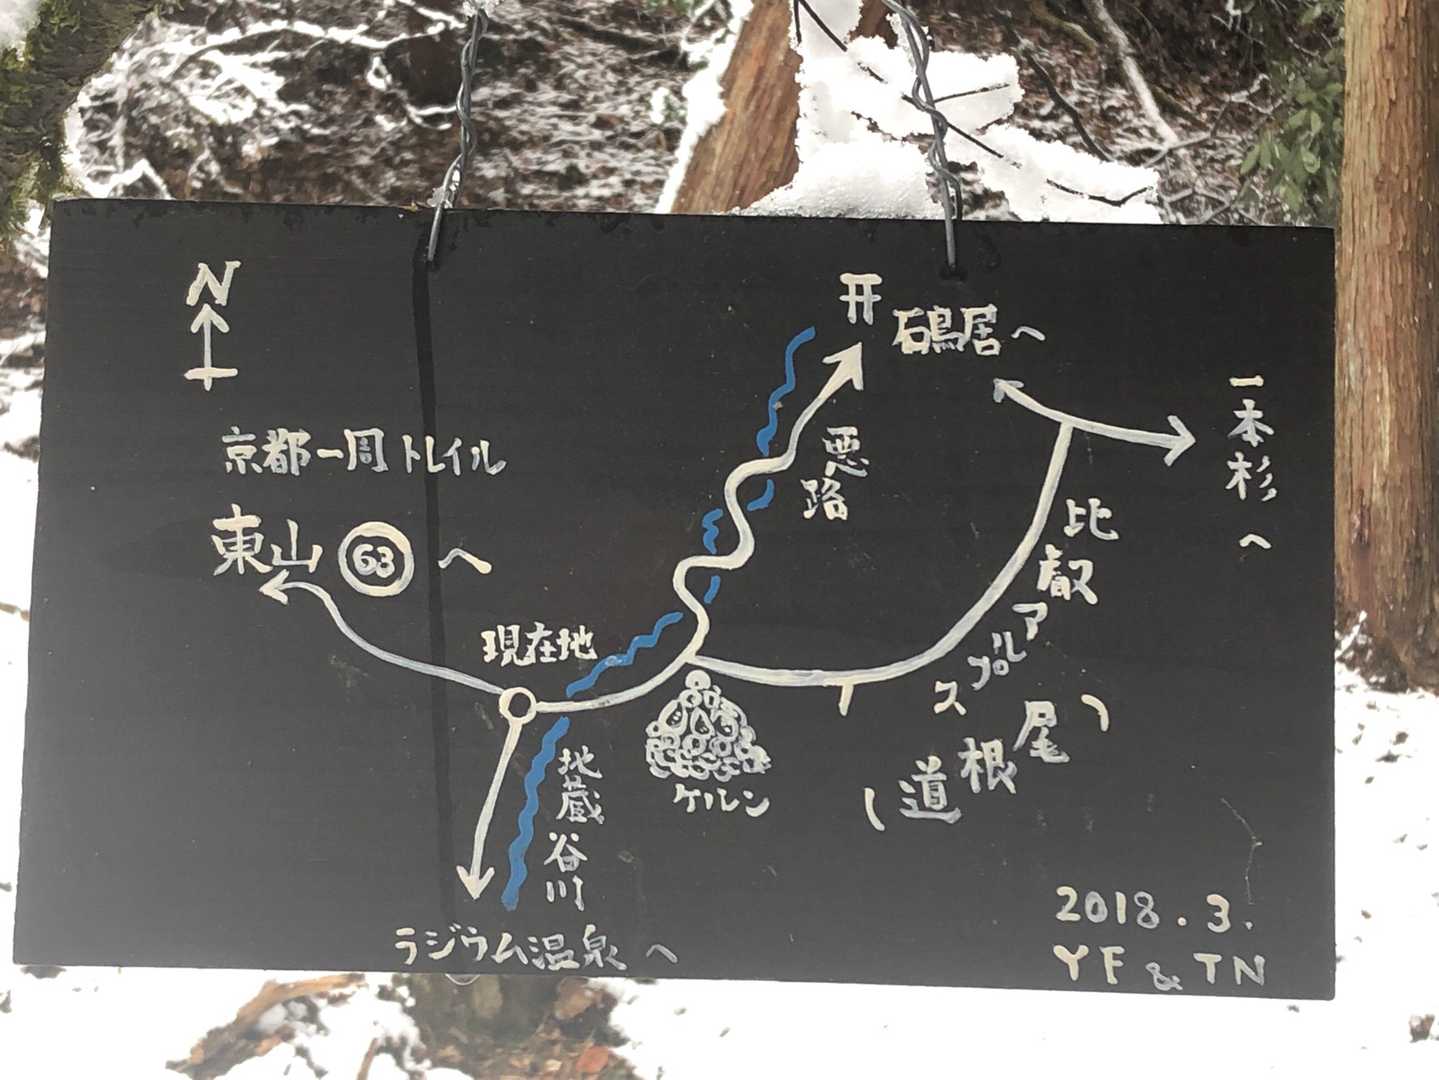 N
石鳥居へ
一本杉へ
京都一周トレイル
東山 63 へ
悪路
比叡アルプス
(道根尾)
現在地
ケルン
地蔵谷川
ラジウム温泉へ
2018.3.
YF & TN